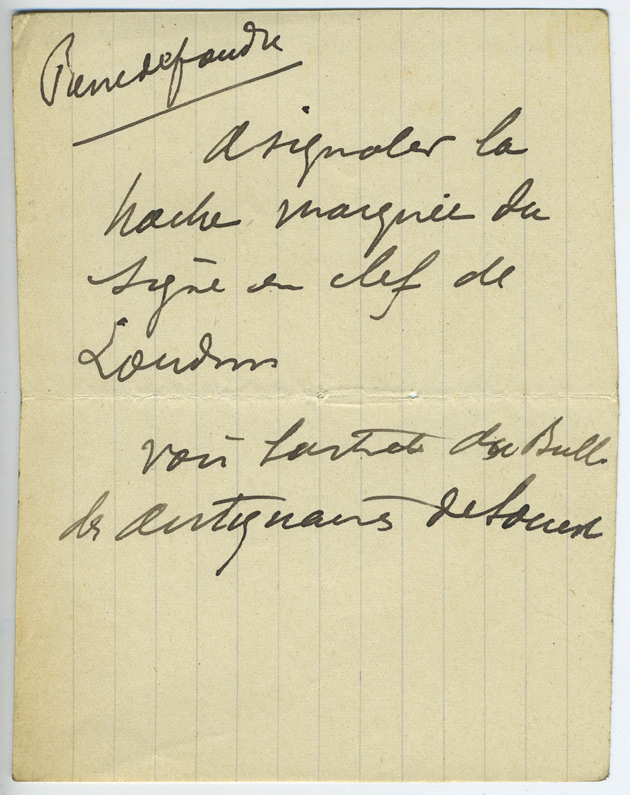 Pierre de foudre
A signaler la
hache marquée du
signe en clef de
Loudun
voir l'extrait du Bull.
des antiquaires de l'ouest